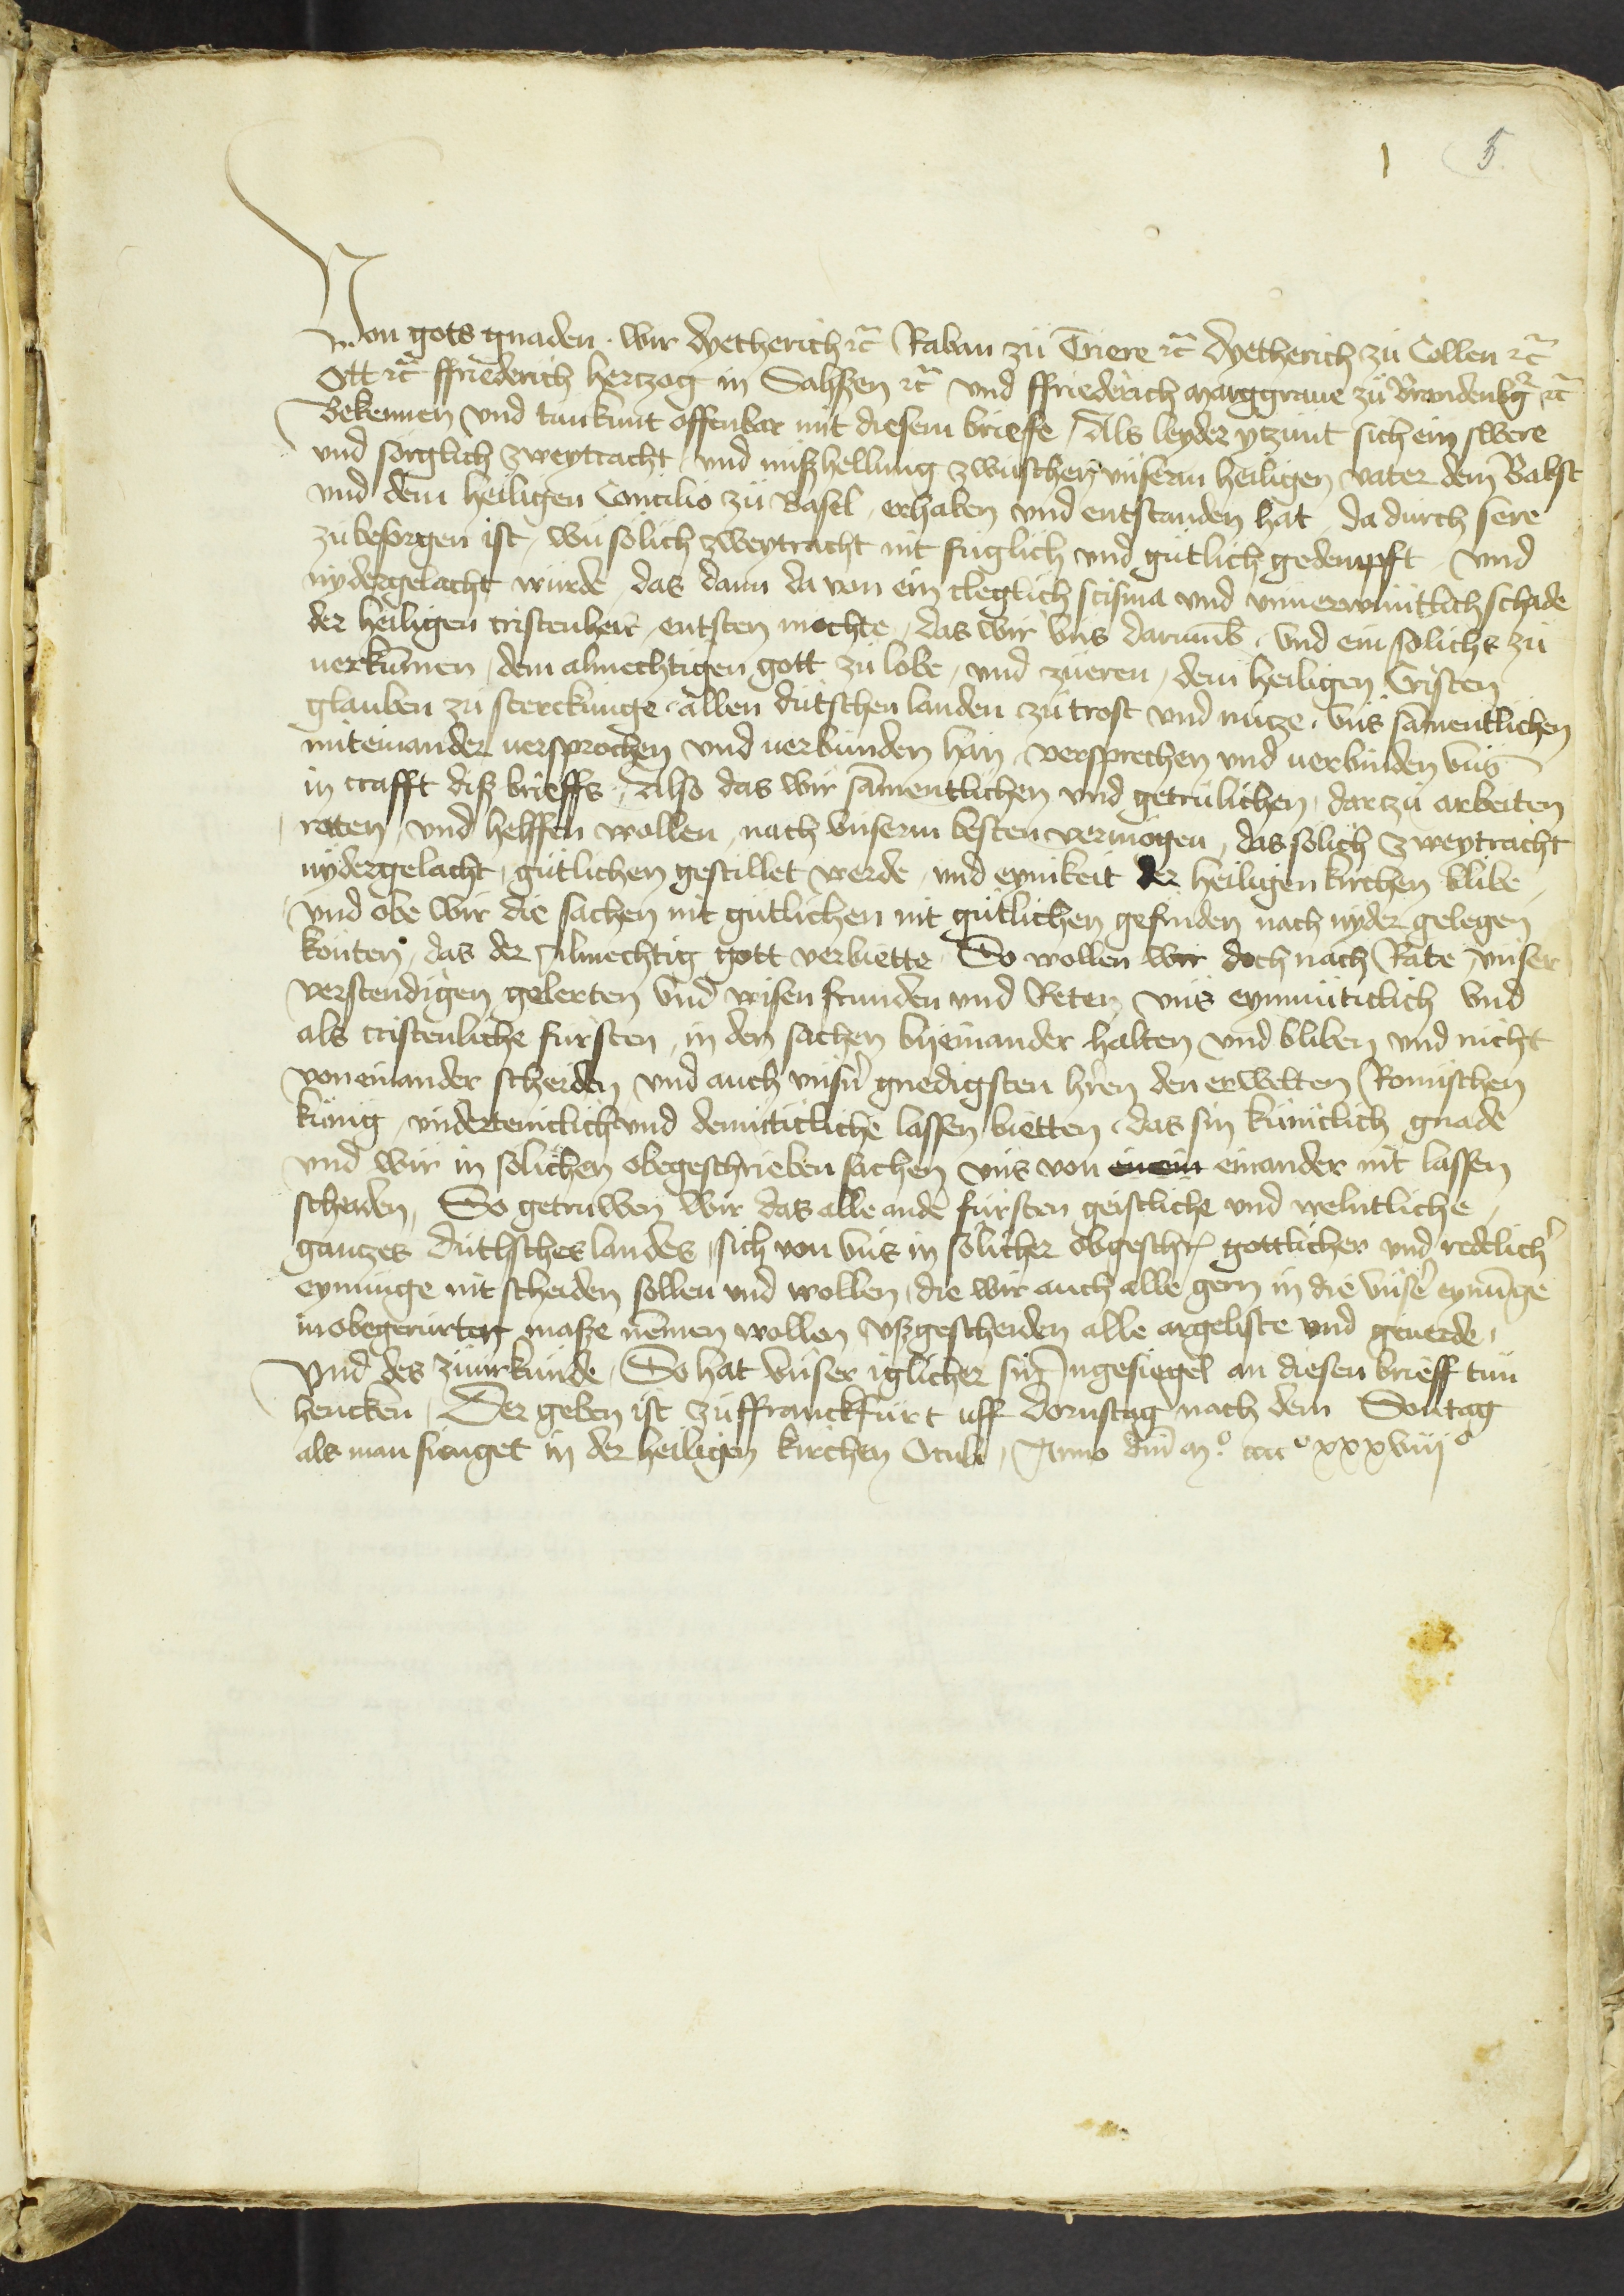 1 5
Von gots gnaden. wir dyetherich etc̄ Raban zu Triere etc̄ dyetherich zu Collen etc̄
Ott etc̄ ffriederich hertzog in Sahßen etc̄ und ffriederich marggraue zu Brandenbg etc̄
Bekennen vnd tun kunt offenbar mit diesem briefe, Als leyder ytzunt sich ein swere
vnd sorglich zweytracht vnd mißhellung zwuschen vnserm heiligen vater dem Babst
vnd dem heiligen Concilio zu Basel, erhaben vnd entstanden hat, da durch sere
zu besorgen ist, wu solich zweytracht nit fuglich vnd gutlich gedempfft, vnd
nydergelacht wurde, das dann da von ein cleglich scisma vnd vnuerwintlich schade
der heiligen cristenheit, entsten mochte, das wir vns darumb, vnd ein solichs zu
uerkumen, dem almechtigen gott zu lobe, vnd zu eren, dem heiligen Cristen
glauben zu sterckunge, allen dutschen landen zu trost vnd nutze, vns samentlichen
miteinander uersprochen vnd uerbunden han, versprechen vnd uerbinden vns
in crafft diß brieffs, Also das wir samentlichen vnd getrulichen, dartzu arbeiten
raten, vnd helffen wollen, nach vnserm besten vermogen, das solich zweytracht
nydergelacht, gutlichen gestillet werde, vnd eynikeit der heiligen kirchen blibe,
vnd obe wir die sachen nit gutlichen nit gutlichen gefinden nach nyder gelegen
konten, das der Almechtig gott verbiette. So wollen wir doch nach Rate vnser
verstendigen gelerten vnd wisen frunden vnd Reten vns eynmuticlich vnd
als cristenliche fursten, in den sachen byeinander halten vnd bliben vnd nicht
voneinander scheiden vnd auch vnsn̄ gnedigsten hren den erwelten Romischen
konig, vnderteniclich vnd demuticliche lassen bietten, das sin kuniclich gnade
vnd wir in solichen obegeschrieben sachen vns von einein einander nit lassen
scheiden, So getruwen wir das alle ande fursten geistliche vnd weltliche,
gantzes duthsches landes, sich von vns in solicher obgeschr gottlicher vnd redlich̄
eynunge nit scheiden sollen vnd wollen, die wir auch alle gern in die vnsē eynunge
in obegerurten maße nemen wollen vßgescheiden alle argeliste vnd geuerde,
Vnd des zu urkunde, So hat vnser iglicher sin Ingesiegel an diesen brieff tun
hencken, Der geben ist zu ffranckfurt uff dornstag nach dem Sontag
als man singet in der heiligen kirchen Oculi, Anno dm̄ mº. ccccº xxxviijº